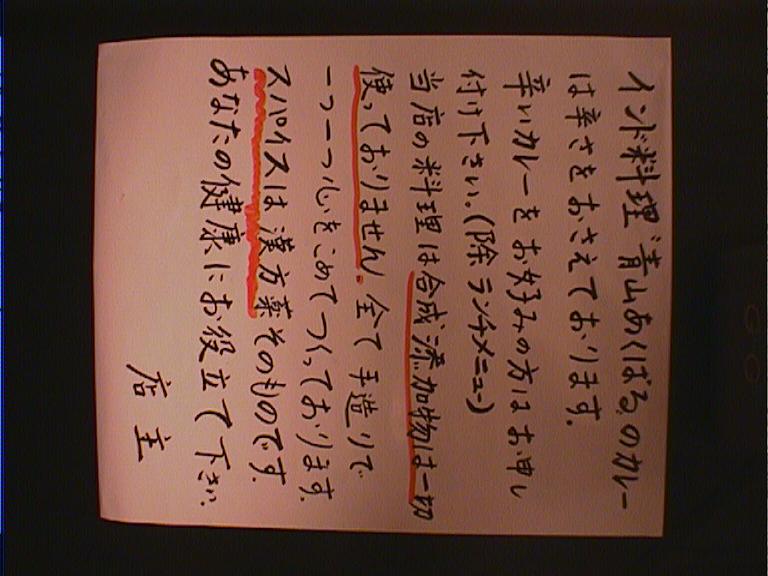 インド料理"青山あくばる"のカレー
は辛さをおさえております。
辛いカレーをお好みの方はお申し
付け下さい。(除ランチメニュー)
当店の料理は合成添加物は一切
使っておりません。全て手造りで
一つ一つ心をこめてつくっております。
スパイスは漢方薬そのものです。
あなたの健康にお役立て下さい。
店主